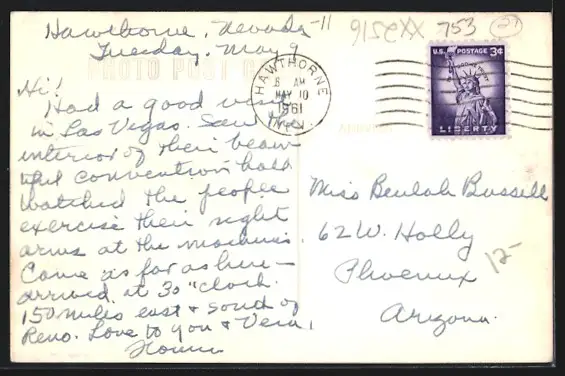 Hawthorne, Nevada-11
Tuesday, May 9
915CXX 753 (27)
PHOTO POST CARD
HAWTHORNE
6 AM
MAY 10
1961
NEV.
U.S. POSTAGE 3¢
LIBERTY
Hi!
Had a good visit
in Las Vegas. Saw the
interior of their beau-
tiful convention hall
Watched the people
exercise their right
arms at the machines.
Came as far as here—
arrived at 3 o"clock.
150 miles east & south of
Reno. Love to you & Vera,
Miss Beulah Bussell
62 W. Holly
Phoenix
Arizona.
12-